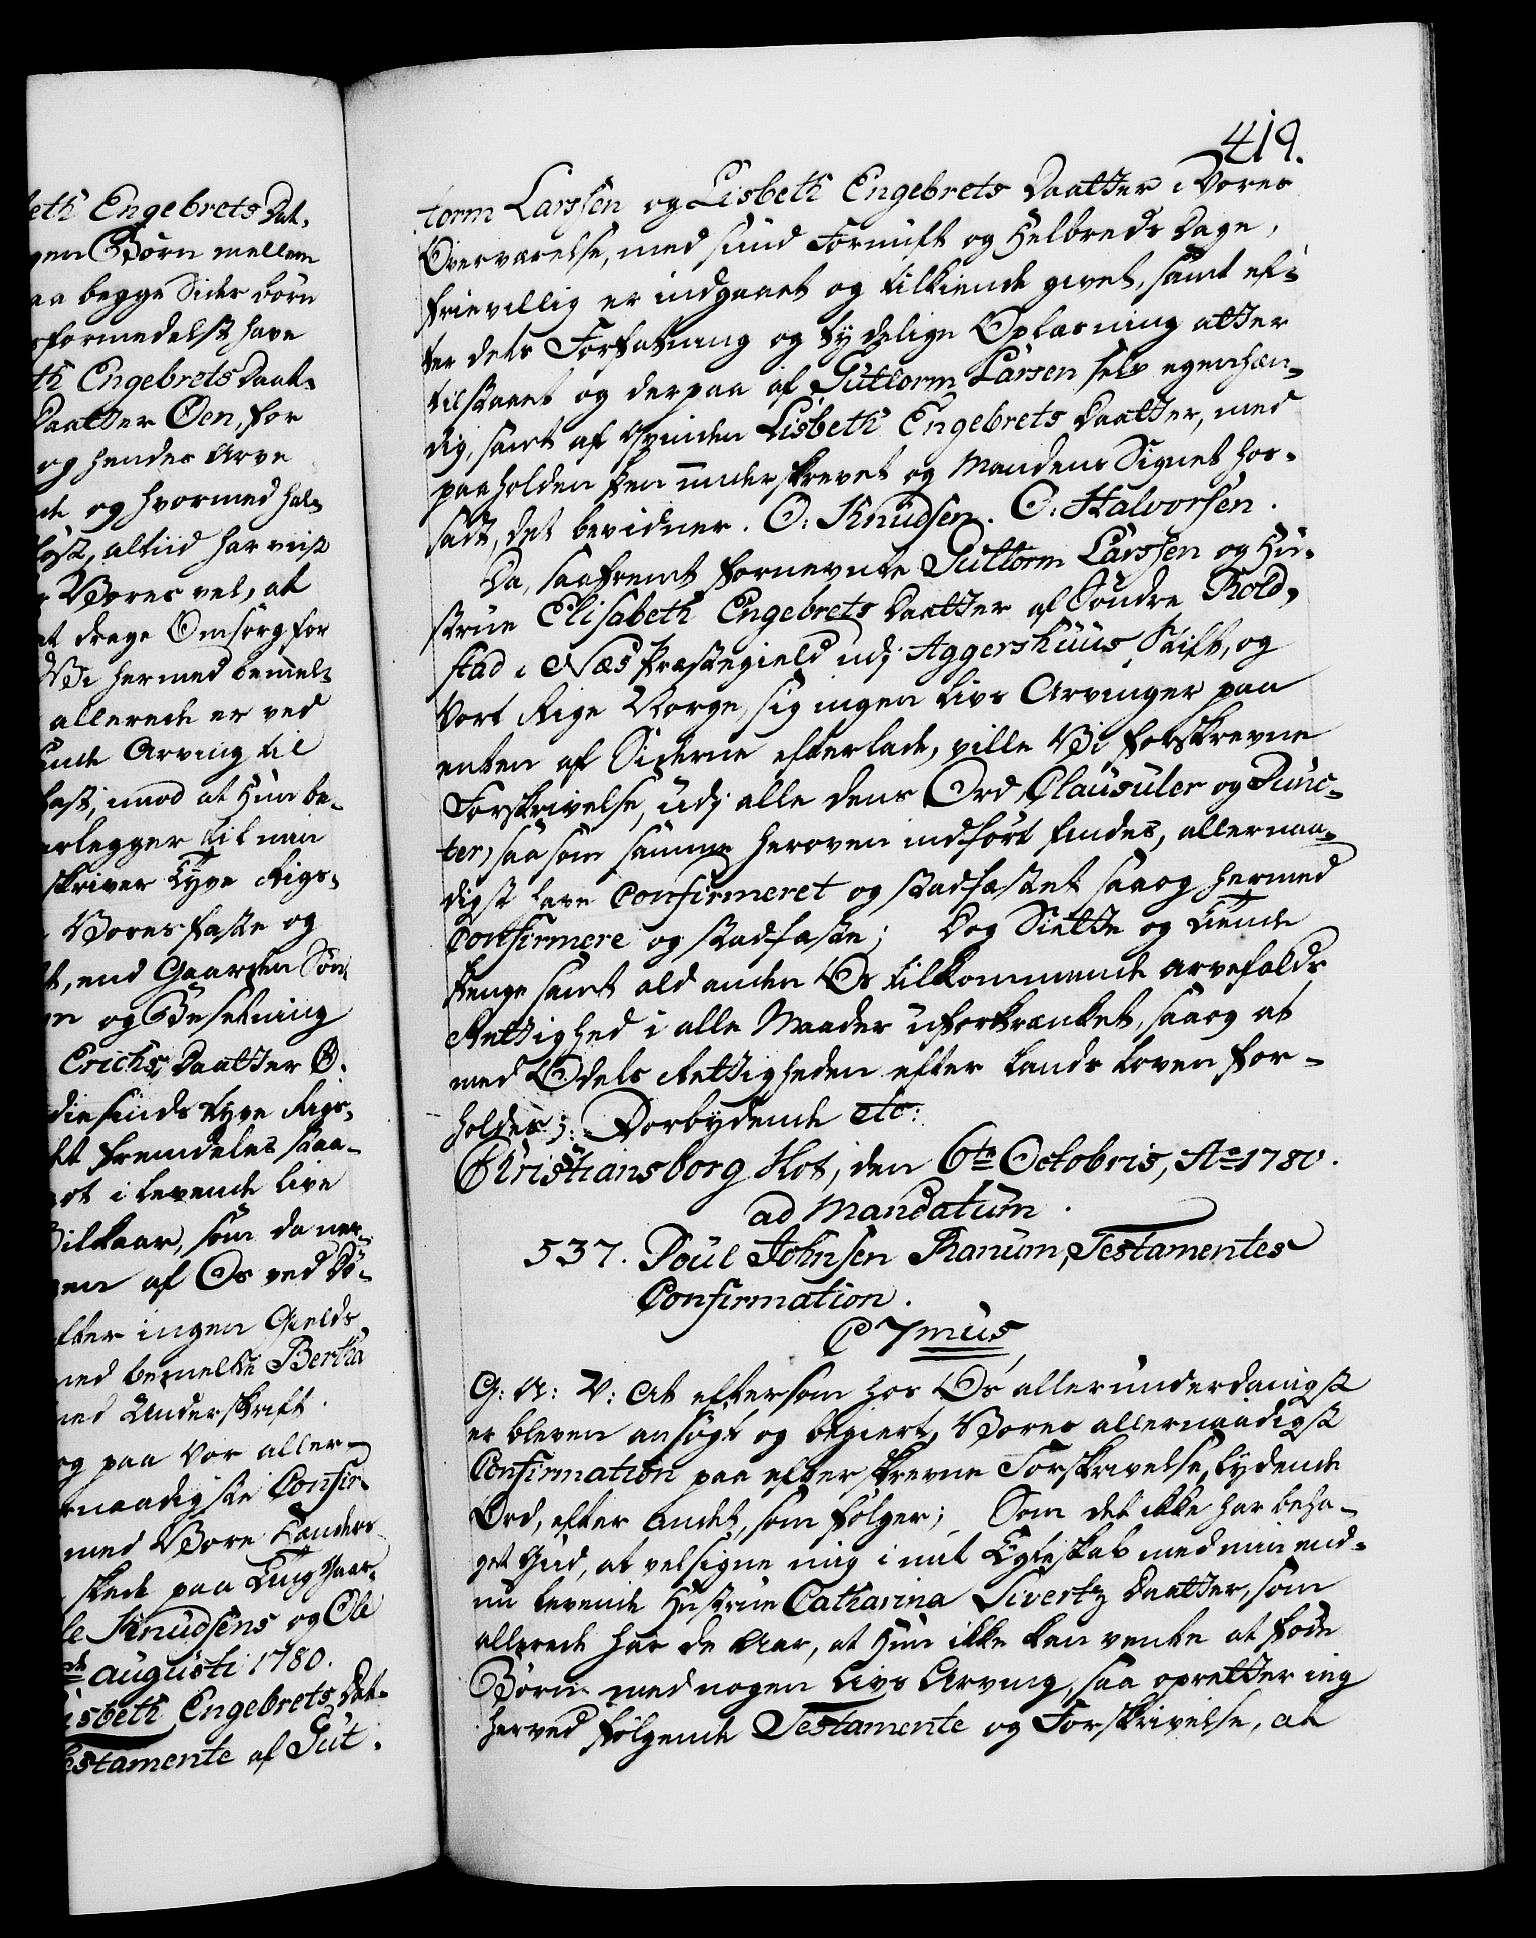 eth Engebrets Dat¬
gen Börn mellem
aa begge Sider börn
formedelst have
th Engebrets Daat¬
Daatter Öen, for
og hendes Arve
de og hvormed hal¬
altiid har viist
Vores vel, at
at drage Omsorg for
Vi hermed bemel¬
allerede er ved
Arving til
imod at Hun be¬
erlegger til min
skriver Tyve Rigs¬
Vores faste og
t, end Gaarden Sön¬
og Besetning
Erichs Daatter Ö.
Tyve Rigs¬
fremdeles staa¬
i levende Live
Vilkaar, som da ner¬
en af Os ved Dö¬
efter ingen Gields
med bemelte Bertha
med Underskrift.
og paa Vor aller¬
rnaadigste Confir¬
med Vore Hænders
skede paa Ting Gaar¬
le Knudsens og Ole
augusti 1780.
isbeth Engebrets Dat¬
estamente af Gut¬
419.
torm Larssen og Lisbeth Engebrets Daatter i Vores
Overværelse, med sund Fornuft og Helbreds Dage,
frievillig er indgaaet og tilkiende givet, samt ef¬
ter dets Forfatning og tydelige Oplæsning atter
tilstaaet og derpaa af Guttorm Larsen selv egenhæn¬
dig, samt af Qvinden Lisbeth Engebrets Daatter, med
paaholden Pen underskrevet og Mandens Signet hos¬
sadt, det bevidner. O: Knudsen. O: Halvorsen.
Da, saafremt fornevnte Guttorm Larssen og Hu¬
strue Elisabeth Engebrets Daatter af Söndre Rold¬
stad i Næs Præstegield udj Aggershuus Stift, og
Vort Rige Norge, sig ingen Livs Arvinger paa
enten af Siderne efterlade, ville Vi forskrevne
Forskrivelse, udj alle dens Ord, Clausuler og Punc¬
ter, saa som samme heroven indfört findes, allernaa¬
digst have Confirmeret og stadfæstet saa og hermed
Confirmere og stadfæste; Dog Siette og Tiende
Penge samt ald anden Os tilkommende arvefalds
Rettighed i alle Maader uforkrænket, saa og at
med Odels Rettigheden efter Lands Loven for¬
holdes; Forbydende etc:
Christiansborg Slot, den 6te Octobris, Ao 1780.
ad Mandatum.
537. Poul Johnsen Ranum, Testamentes
Confirmation.
C 7mus
G: A: V: At eftersom hos Os allerunderdanigst
er bleven ansögt og begiert, Vores allernaadigst
Confirmation paa efterskrevne Forskrivelse, lydende
Ord, efter andet, som fölger; Som det ikke har beha¬
get Gud, at velsigne mig i mit Egteskab med min end¬
nu levende Hustrue Catharina Sivertz Daatter, som
allerede har de Aar, at Hun ikke kan vente at föde
Börn med nogen Livs Arving, saa opretter ieg
herved fölgende Testamente og Forskrivelse, at